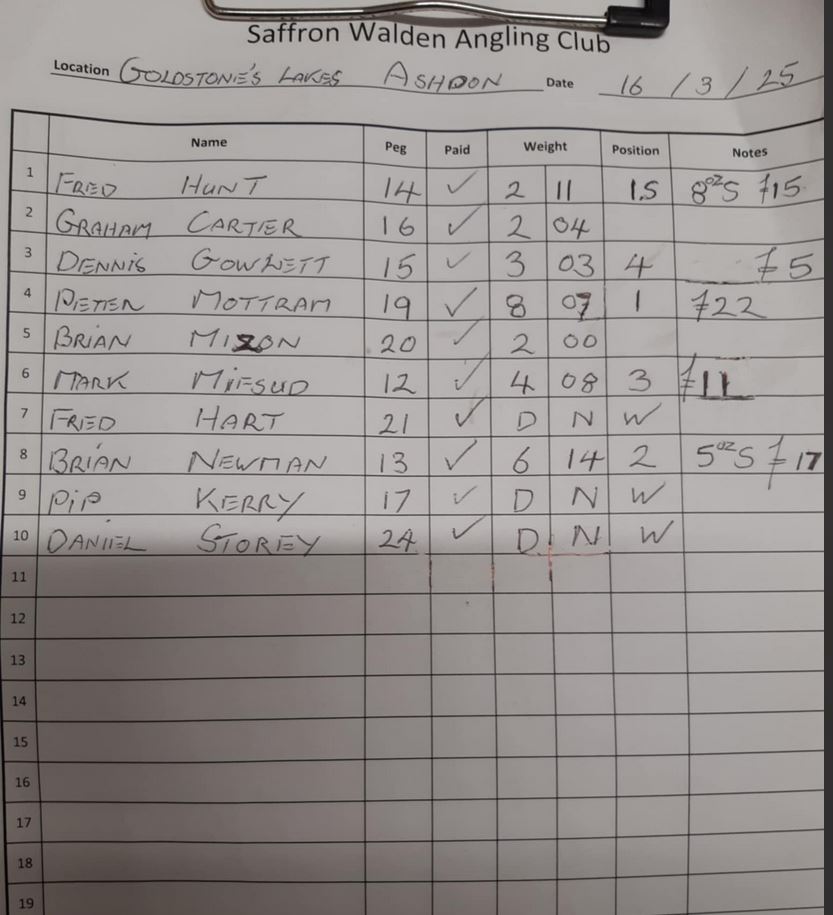 Saffron Walden Angling Club
Location GOLDSTONE'S LAKES ASHDON Date 16 / 3 / 25
Name Peg Paid Weight Position Notes
1 FRED HUNT 14 ✓ 2 11 15 8ozS £15
2 GRAHAM CARTER 16 ✓ 2 04
3 DENNIS GOWLETT 15 ✓ 3 03 4 £5
4 PETER MOTTRAM 19 ✓ 8 07 1 £22
5 BRIAN MIZON 20 ✓ 2 00
6 MARK MIFSUD 12 ✓ 4 08 3 £11
7 FRED HART 21 ✓ D N W
8 BRIAN NEWMAN 13 ✓ 6 14 2 5ozS £17
9 PIP KERRY 17 ✓ D N W
10 DANIEL STOREY 24 ✓ D N W
11
12
13
14
15
16
17
18
19